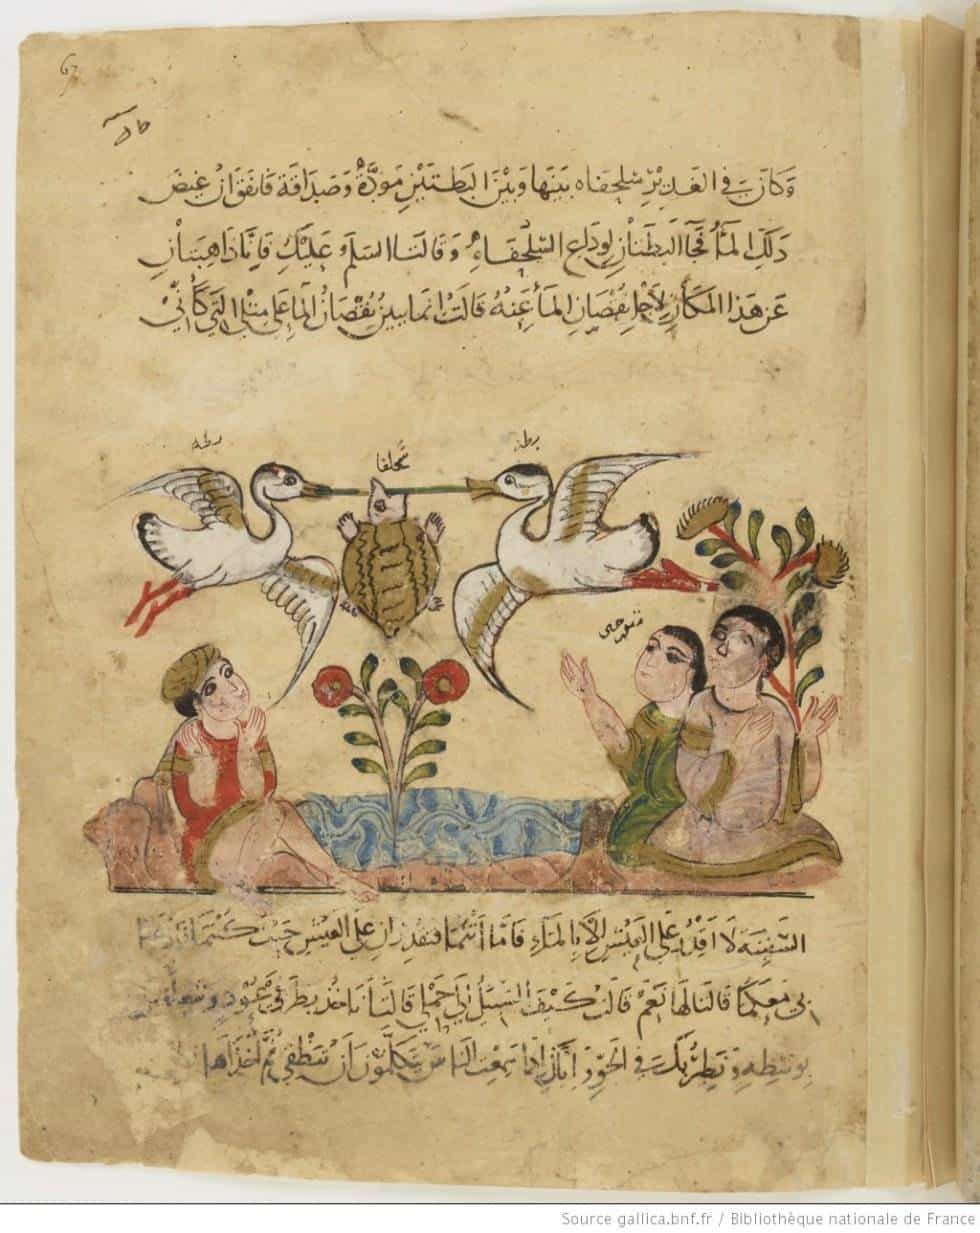 67
وكان في الغدير سلحفاه بينها وبين البطتين مودة وصداقة فاتفق ان غيض
ذلك الماء فجاا البطتان لوداع السلحفاة وقالتا السلم عليك فاننا ذاهبتان
عن هذا المكان لاجل نقصان الماء عنه قالت انما يبين نقصان الما على مثلي التي كاني
بطه
بطه
السفينه لا اقدر على العيش الا بالماء فاما انتما فتقدران على العيش حيث كنتما
بي معكما قالتا لها نعم قالت كيف السبيل الى حملي قالتا ناخذ بطرفي عود
بوسطه ونطير بك في الجو واياك اذا سمعت الناس يتكلمون ان تنطقي ثم اخذاها
Source gallica.bnf.fr / Bibliothèque nationale de France